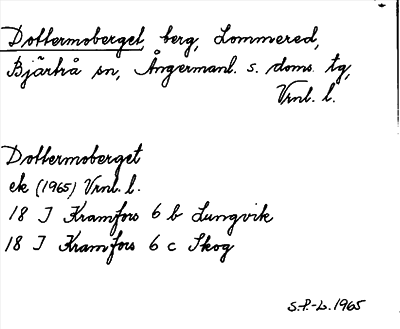 Dottermoberget, berg, Lommered,
Bjärtrå sn, Ångermanl. s. doms. tg,
Vrnl. l.
Dottermoberget
ek (1965) Vrnl. l.
18 J Kramfors 6 b Lungvik
18 J Kramfors 6 c Skog
S.P.-L. 1965